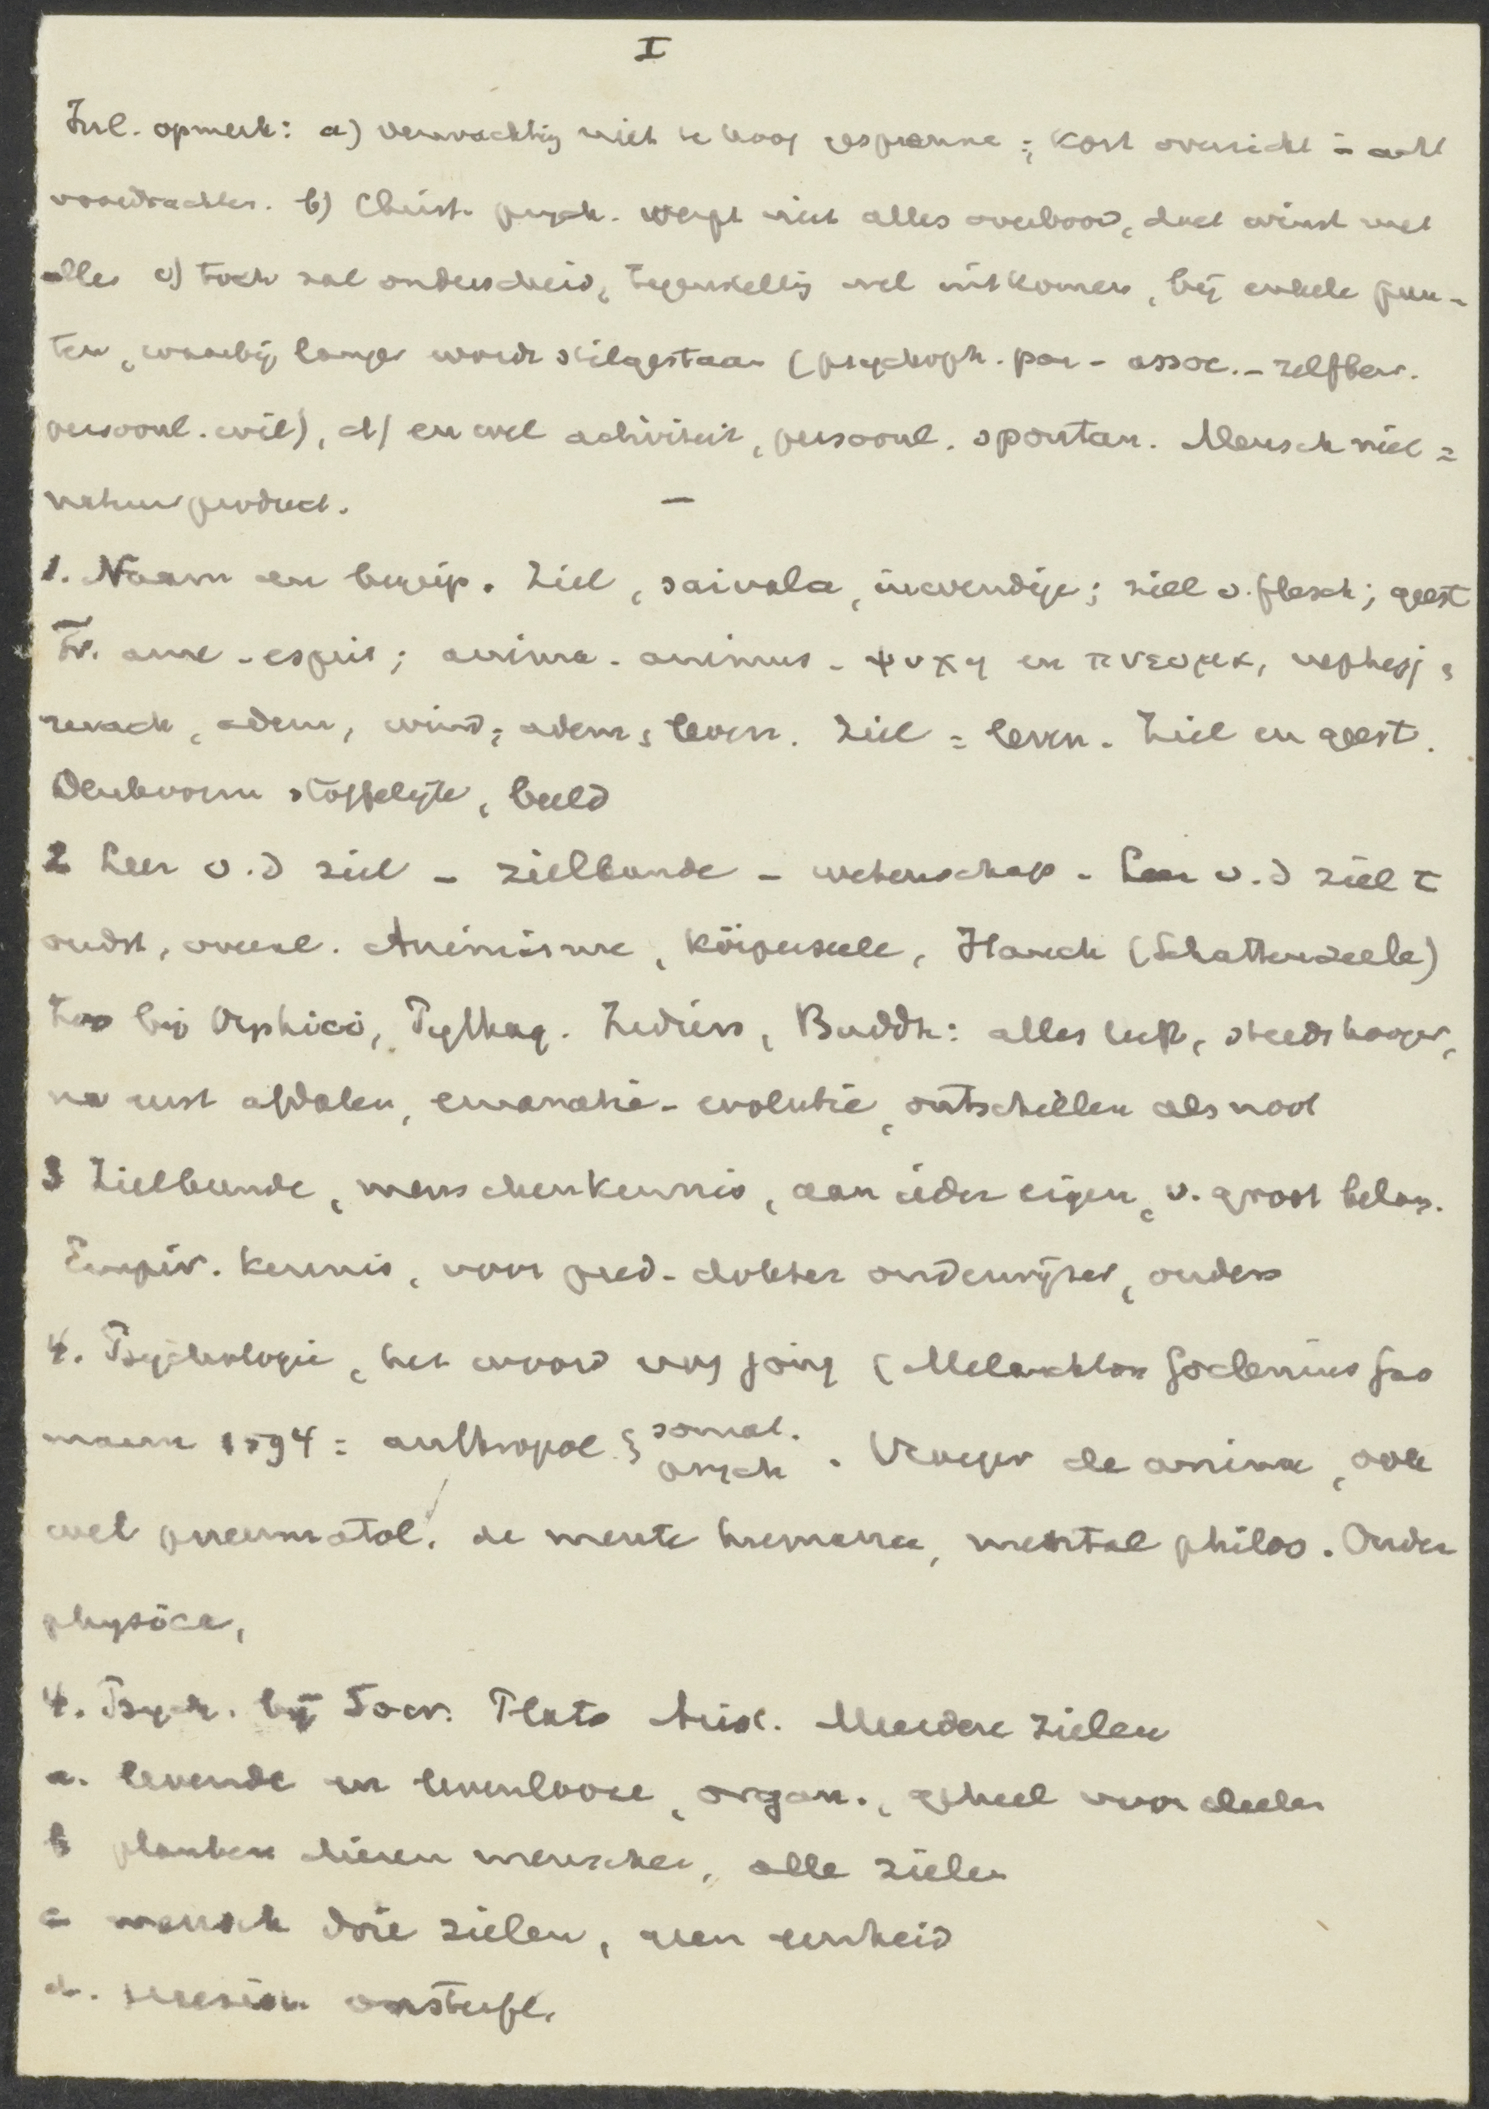 I
Inl. opmerk: a) verwachting niet te hoog gespanne; kort overzicht in acht
voordrachten. b) Christ. psych. werpt niet alles overboord, doet winst met
alles c) toch zal onderscheid, tegenstelling wel uitkomen, bij enkele pun-
ten, waarbij langer wordt stilgestaan (psychoph. par - assoc. - zelfbew.
persoonl. wil), d) en wel activiteit, persoonl. spontan. Mensch niet =
natuurproduct. —
1. Naam en begrip. Ziel, saivala, inwendige; ziel v. flesch; geest
Fr. ame - esprit; anima - animus - ψυχη en πνευμα, nephesj,
ruach, adem, wind, adem, leven. Ziel = leven. Ziel en geest.
Denkvorm stoffelijke, beeld
2 Leer v.d ziel - zielkunde - wetenschap - Leer v.d ziel
oudst, overal. Animisme, Körperseele, Hauch (Schattenseele)
Zoo bij Orphici, Pythag. Indiers, Buddh: alles leeft, steeds hooger,
na eerst afdalen, emanatie - evolutie, ontschillen als noot
3 Zielkunde, menschenkennis, aan ieder eigen, v. groot belang.
Empir. kennis, voor pred - dokter onderwijzer, ouders
4. Psychologie, het woord nog jong (Melanchton Goclenius Cas
mann 1594 = anthropol. { somat.
psych . Vroeger de anima, ook
wel pneumatol. de mente humana, mental philos. Onder
physica,
4. Psych. bij Socr. Plato Arist. Meerdere zielen
a. levende en levenlooze, organ., geheel voor deelen
b planten dieren menschen, alle zielen
c mensch drie zielen, geen eenheid
d. onsterfl.